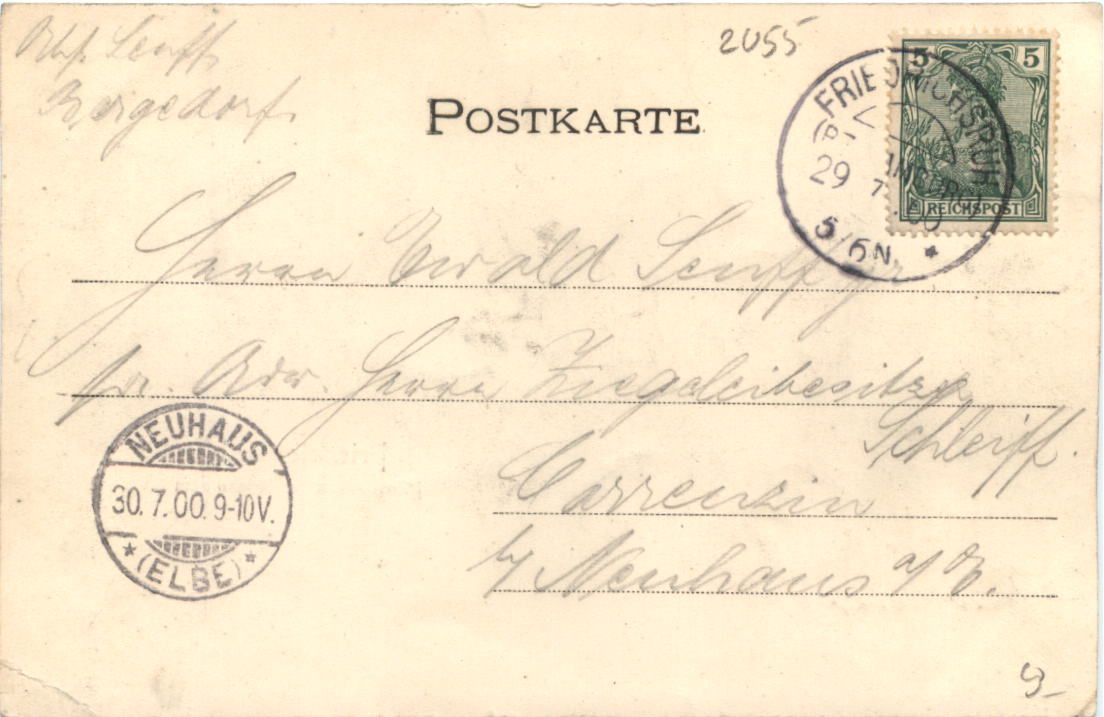 Abs. Senff,
Bergedorf.
2055
POSTKARTE
5 5
REICHSPOST
FRIEDRICHSRUH
29 7 00
5/6N. *
Herrn Ewald Senff jr
pr. Adr. Herrn Ziegeleibesitzer
Schleiff.
Carrenzin
b/ Neuhaus a/E.
NEUHAUS
30.7.00.9-10V.
* (ELBE) *
9-